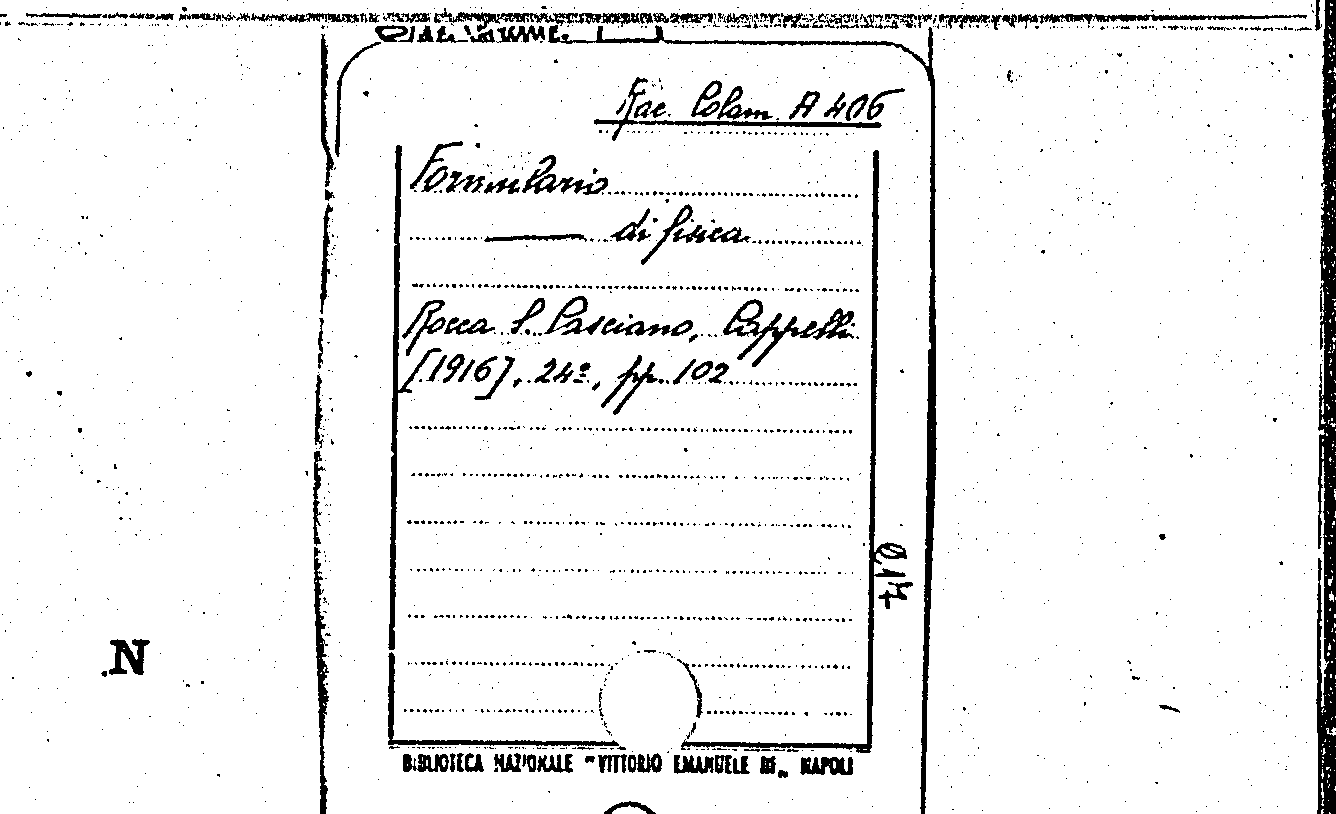 Rac. Colam. A 406
Formulario
di fisica
Rocca S. Casciano, Cappelli
[1916], 24º, pp. 102
N
BIBLIOTECA NAZIONALE "VITTORIO EMANUELE III„ NAPOLI